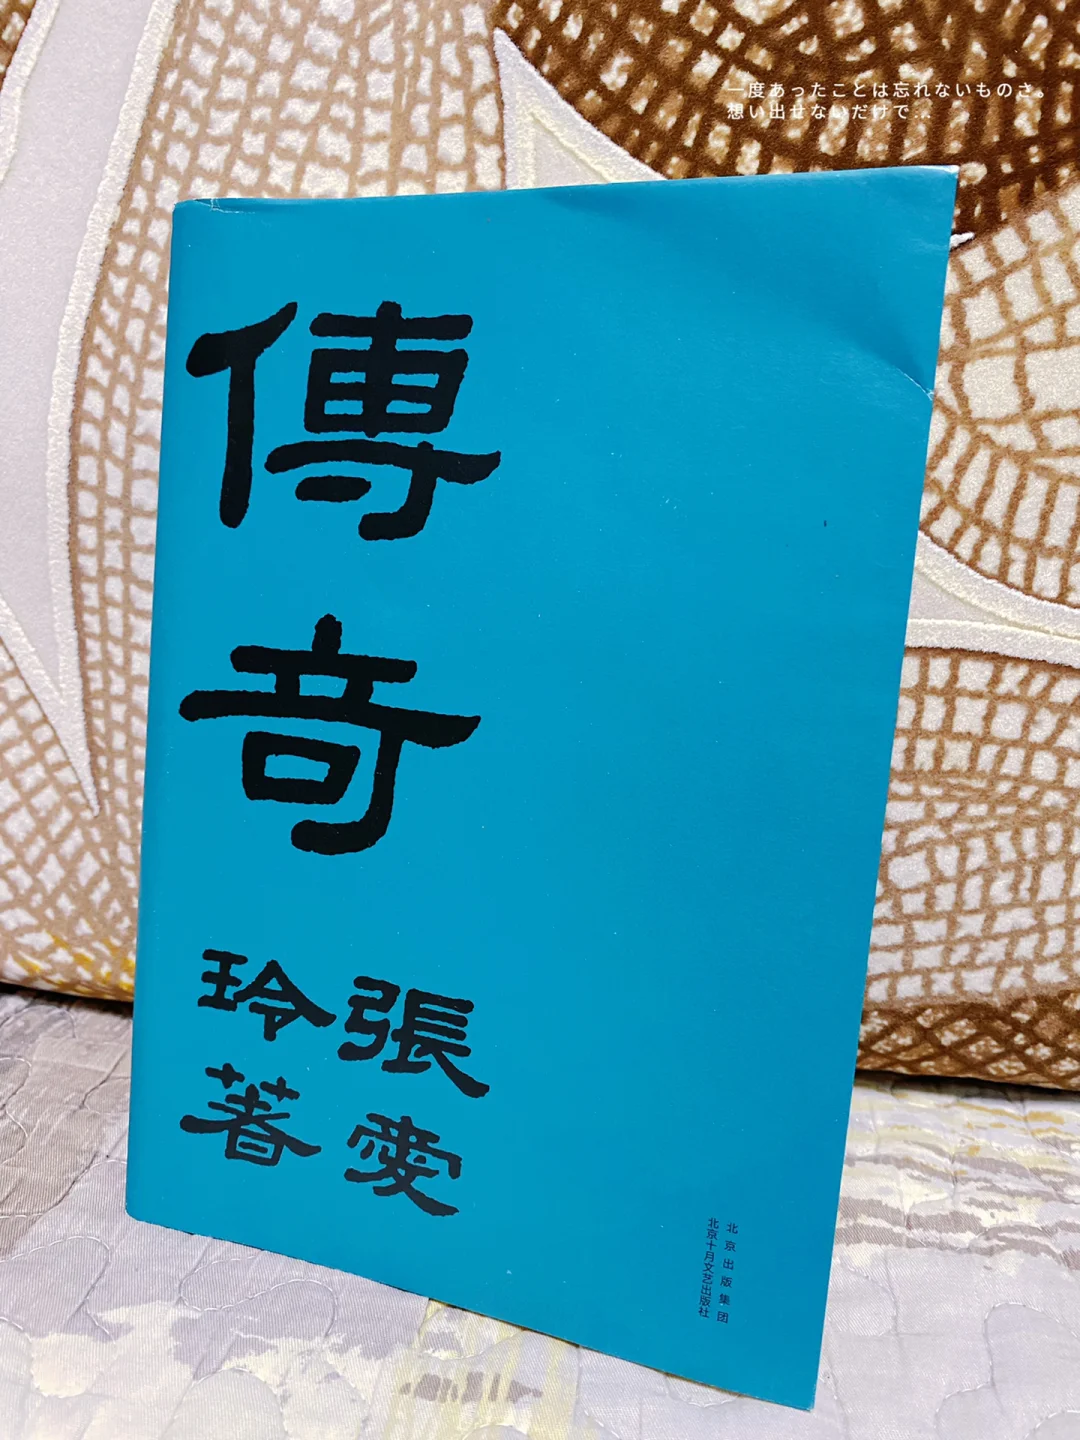 一度あったことは忘れないものさ。
想い出せないだけで...
傳奇
張愛
玲著
北京出版集团
北京十月文艺出版社